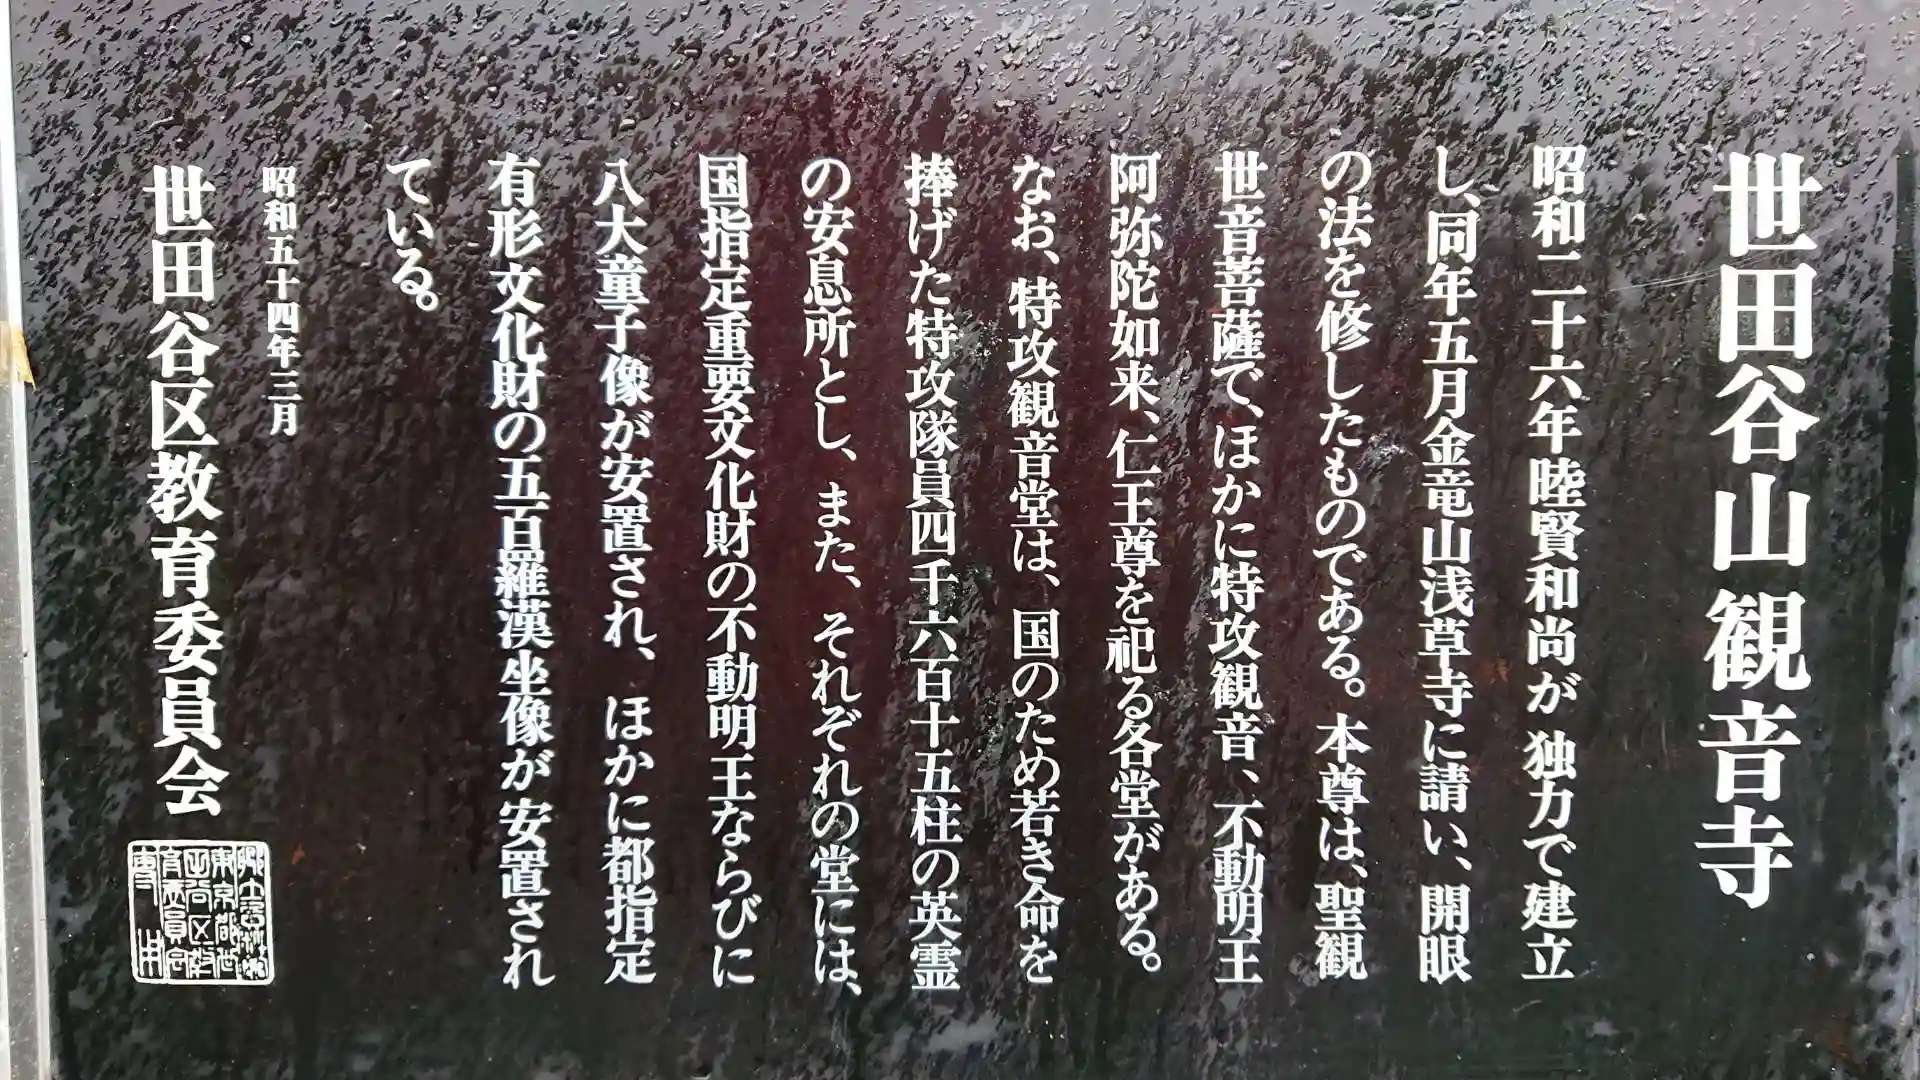 世田谷山観音寺
昭和二十六年陸賢和尚が独力で建立
し、同年五月金竜山浅草寺に請い、開眼
の法を修したものである。本尊は、聖観
世音菩薩で、ほかに特攻観音、不動明王
阿弥陀如来、仁王尊を祀る各堂がある。
なお、特攻観音堂は、国のため若き命を
捧げた特攻隊員四千六百十五柱の英霊
の安息所とし、また、それぞれの堂には、
国指定重要文化財の不動明王ならびに
八大童子像が安置され、ほかに都指定
有形文化財の五百羅漢坐像が安置され
ている。
昭和五十四年三月
世田谷区教育委員会